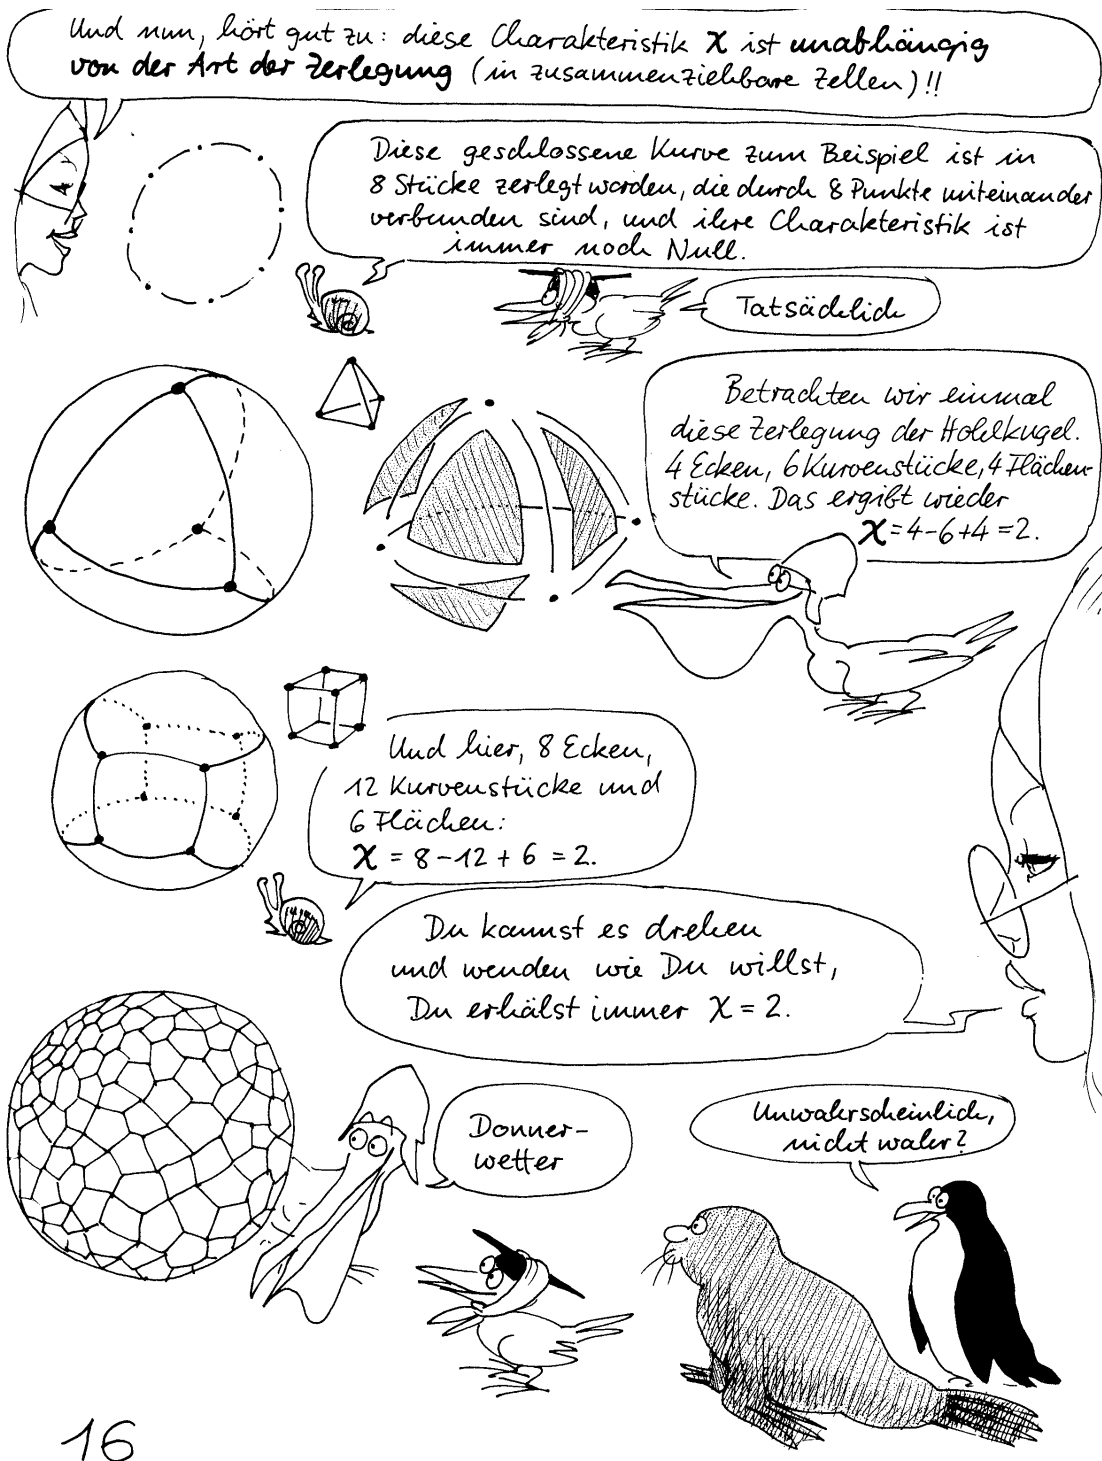 Und nun, hört gut zu: diese Charakteristik χ ist unabhängig
von der Art der Zerlegung (in zusammenziehbare Zellen)!!
Diese geschlossene Kurve zum Beispiel ist in
8 Stücke zerlegt worden, die durch 8 Punkte miteinander
verbunden sind, und ihre Charakteristik ist
immer noch Null.
Tatsächlich
Betrachten wir einmal
diese Zerlegung der Hohlkugel.
4 Ecken, 6 Kurvenstücke, 4 Flächen-
stücke. Das ergibt wieder
χ = 4-6+4 = 2.
Und hier, 8 Ecken,
12 Kurvenstücke und
6 Flächen:
χ = 8-12+6 = 2.
Du kannst es drehen
und wenden wie Du willst,
Du erhälst immer χ = 2.
Donner-
wetter
Unwahrscheinlich,
nicht wahr?
16